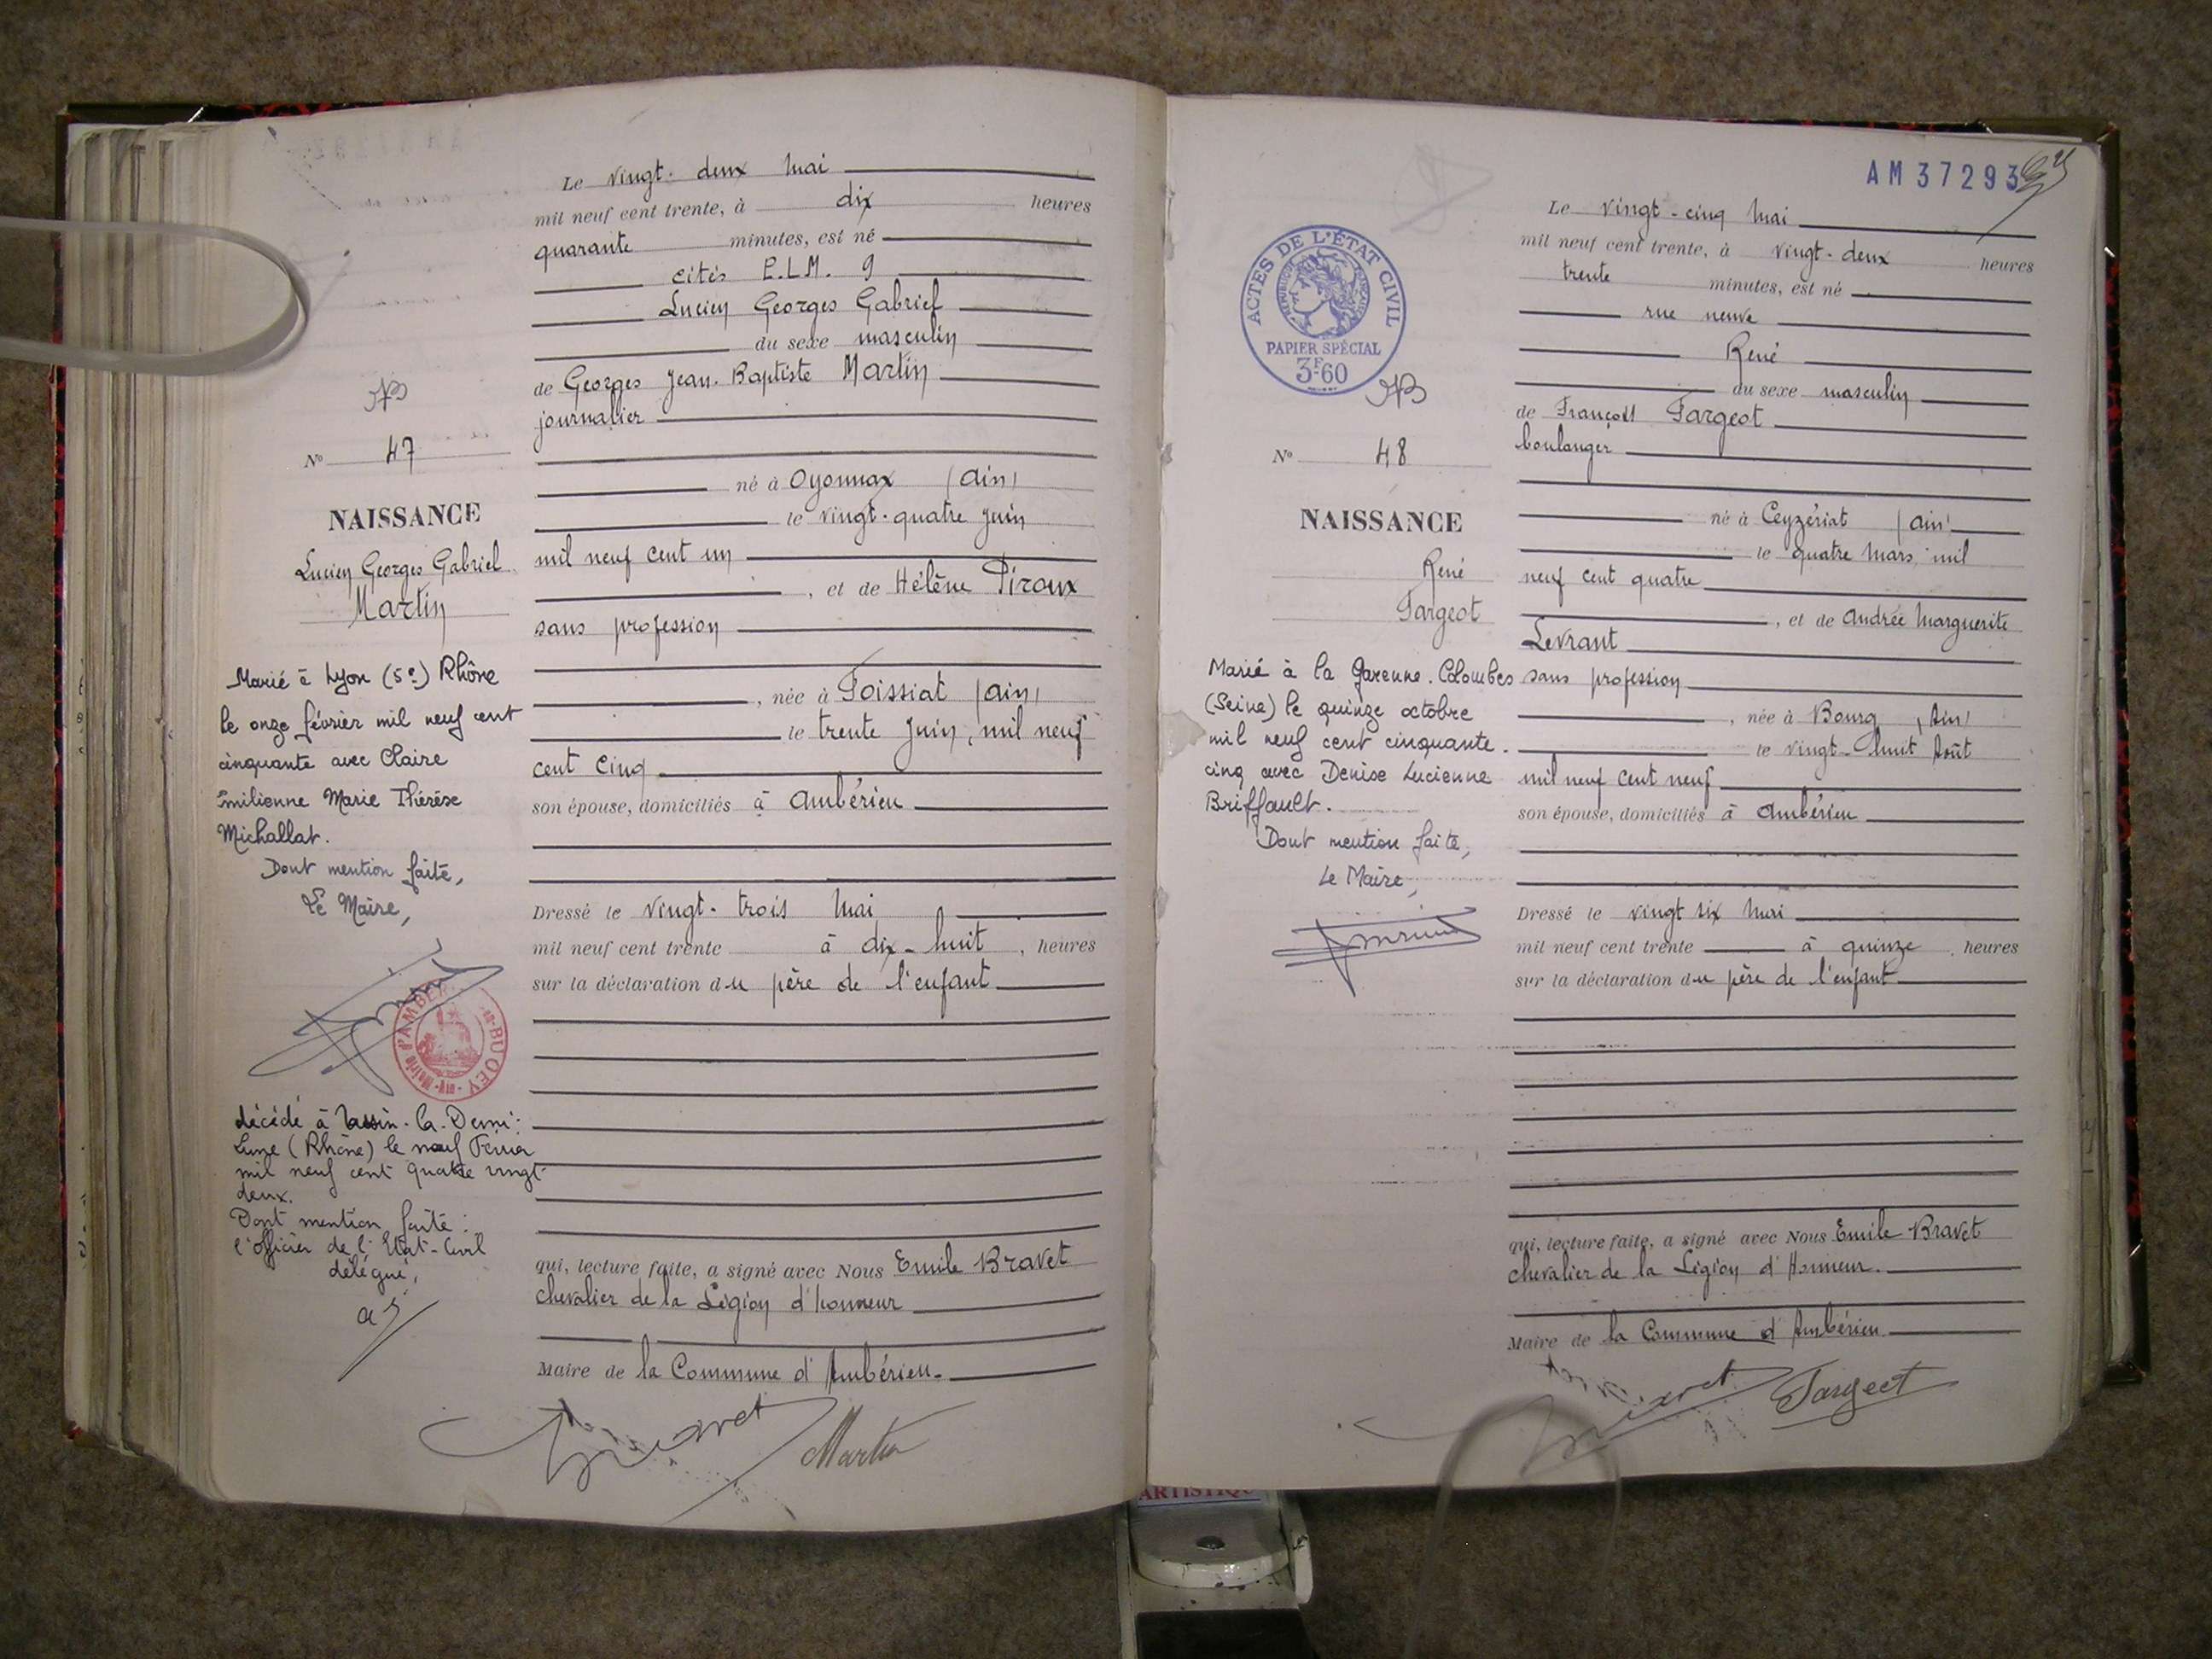 Le vingt-deux Mai
mil neuf cent trente, à dix heures
quarante minutes, est né
cités P.L.M. 9
Lucien Georges Gabriel
du sexe masculin
de Georges Jean-Baptiste Martin
journalier
né à Oyonnax (Ain)
le vingt-quatre Juin
mil neuf cent un
, et de Hélène Piroux
sans profession
, née à Foissiat (Ain)
le trente Juin, mil neuf
cent cinq
son épouse, domiciliés à Ambérieu
Dressé le vingt-trois Mai
mil neuf cent trente à dix-huit, heures
sur la déclaration du père de l'enfant
qui, lecture faite, a signé avec Nous Emile Bravet
chevalier de la Légion d'honneur
Maire de la Commune d'Ambérieu.
Bravet Martin
N° 47
NAISSANCE
Lucien Georges Gabriel
Martin
Marié à Lyon (5e) Rhône
le onze février mil neuf cent
cinquante avec Claire
Emilienne Marie Thérèse
Michallat.
Dont mention faite,
Le Maire,
décédé à Tassin-la-Demi-
Lune (Rhône) le neuf Février
mil neuf cent quatre vingt-
deux.
Dont mention faite:
l'officier de l'Etat-Civil
délégué,
AM37293
ACTES DE L'ÉTAT CIVIL
RÉPUBLIQUE FRANÇAISE
PAPIER SPÉCIAL
3F60
Le vingt-cinq Mai
mil neuf cent trente, à vingt-deux heures
trente minutes, est né
rue neuve
René
du sexe masculin
de François Fargeot
boulanger
né à Ceyzériat (Ain)
le quatre Mars mil
neuf cent quatre
, et de Andrée Marguerite
Levrant
sans profession
, née à Bourg (Ain)
le vingt-huit Août
mil neuf cent neuf
son épouse, domiciliés à Ambérieu
Dressé le vingt six Mai
mil neuf cent trente à quinze, heures
sur la déclaration du père de l'enfant
qui, lecture faite, a signé avec Nous Emile Bravet
chevalier de la Légion d'Honneur.
Maire de la Commune d'Ambérieu
Bravet Fargeot
N° 48
NAISSANCE
René
Fargeot
Marié à la Garenne-Colombes
(Seine) le quinze octobre
mil neuf cent cinquante-
cinq avec Denise Lucienne
Briffault.
Dont mention faite,
Le Maire,
ARTISTIQUE